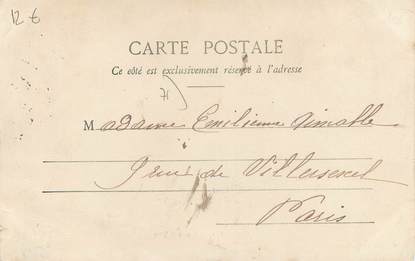 12 €
CARTE POSTALE
Ce côté est exclusivement réservé à l'adresse
71
Madame Emilienne
9 rue de Villersexel
Paris